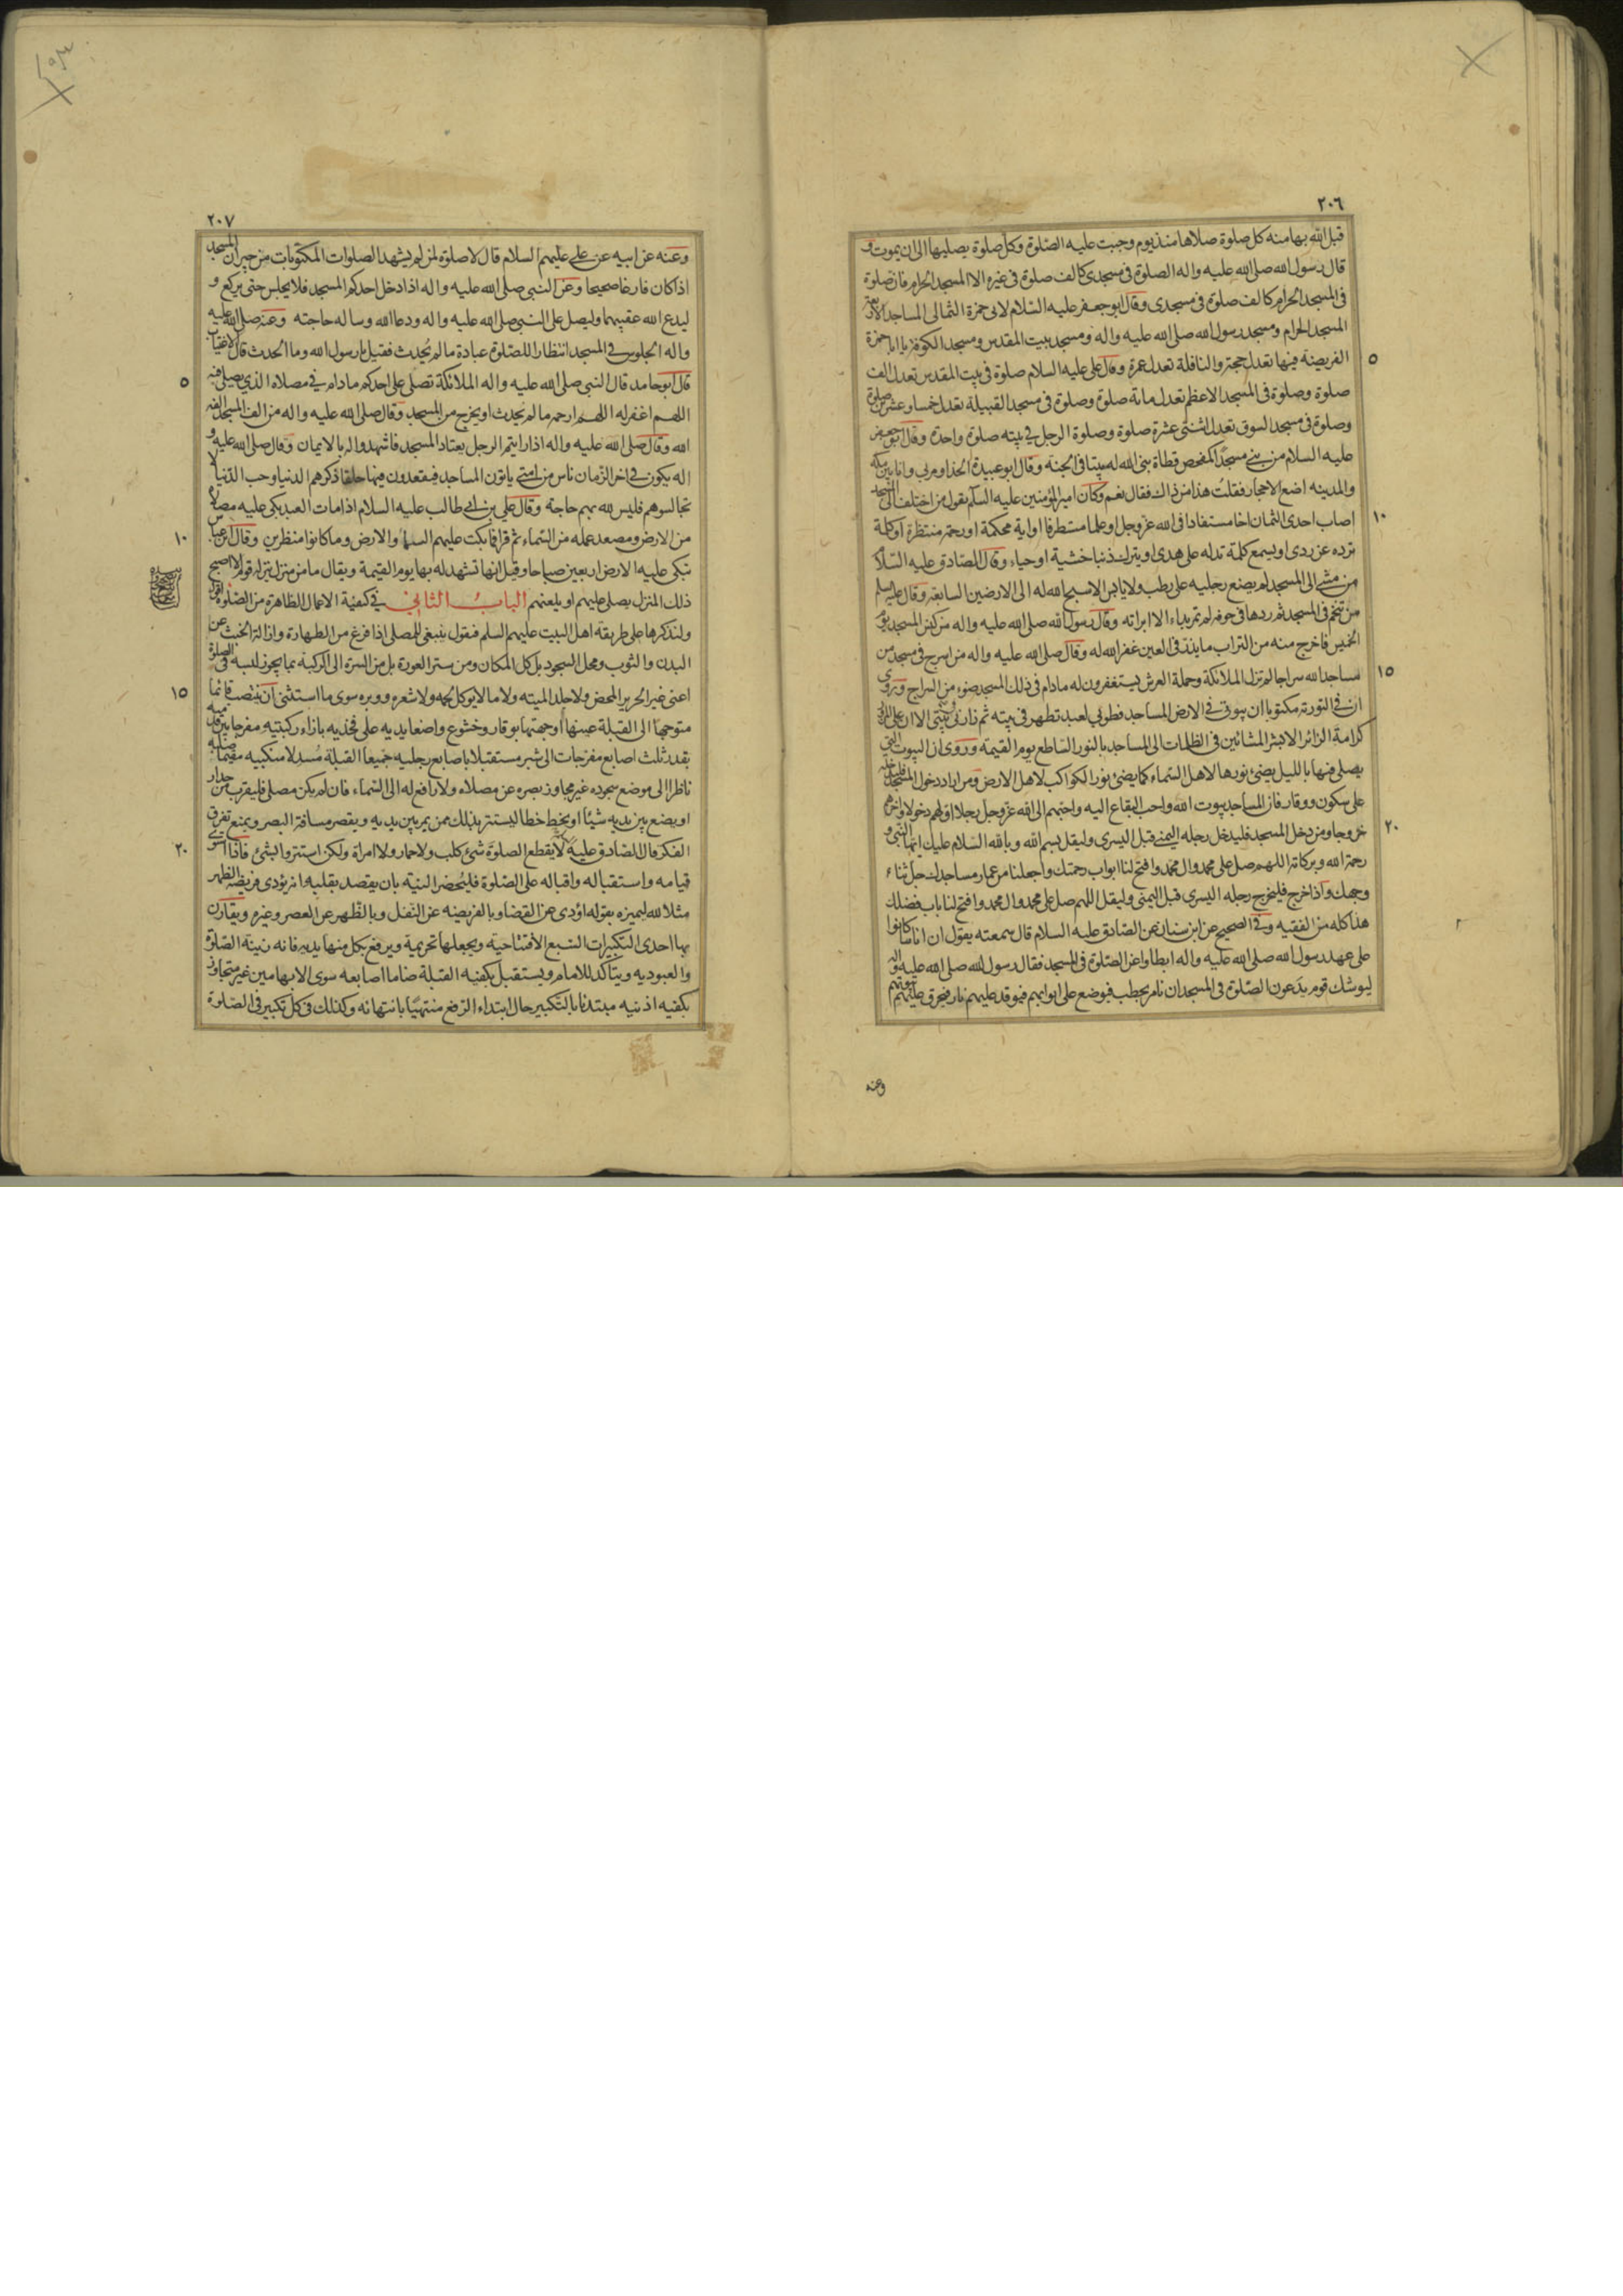 ٢٠٦
قبل الله بها منه كل صلوة صلاها منذ يوم وجبت عليه الصلوة وكل صلوة يصليها الى ان يموت و
قال رسول الله صلى الله عليه واله الصلوة فى مسجدى كالف صلوة فى غيره الا المسجد الحرام فان صلوة
فى المسجد الحرام كالف صلوة فى مسجدى وقال ابو جعفر عليه السلام لابى حمزة الثمالى المساجد الاربعة
المسجد الحرام ومسجد رسول الله صلى الله عليه واله ومسجد بيت المقدس ومسجد الكوفة يا ابا حمزة
٥
الفريضة فيها تعدل حجة والنافلة تعدل عمرة وقال على عليه السلام صلوة فى بيت المقدس تعدل الف
صلوة وصلوة فى المسجد الاعظم تعدل مائة صلوة وصلوة فى مسجد القبيلة تعدل خمسا وعشرين صلوة
وصلوة فى مسجد السوق تعدل اثنتى عشرة صلوة وصلوة الرجل فى بيته صلوة واحدة وقال ابو جعفر
عليه السلام من بنى مسجدا كمفحص قطاة بنى الله له بيتا فى الجنة وقال ابو عبيدة الحذا ومر بى وانا بين مكة
والمدينه اضع الاحجار فقلت هذا من ذاك فقال نعم وكان امير المؤمنين عليه السلم يقول من اختلف الى المسجد
١٠
اصاب احدى الثمان اخا مستفادا فى الله عز وجل او علما مستطرفا او اية محكمة او رحمة منتظرة او كلمة
ترده عن ردى او يسمع كلمة تدله على هدى او يترك ذنبا خشية او حياء وقال الصادق عليه السلام
من مشى الى المسجد لم يضع رجليه على رطب ولا يابس الا سبح الله له الى الارضين السابعة وقال عليه السلم
من تنخم فى المسجد ثم ردها فى جوفه لم تمر بداء الا ابراته وقال رسول الله صلى الله عليه واله من كنس المسجد يوم
الخميس فاخرج منه من التراب ما يذر فى العين غفر الله له وقال صلى الله عليه واله من اسرج فى مسجد من
١٥
مساجد الله سراجا لم تزل الملائكة وحملة العرش يستغفرون له مادام فى ذلك المسجد ضوء من السراج وروى
ان فى التورية مكتوبا ان بيوتى فى الارض المساجد فطوبى لعبد تطهر فى بيته ثم زارنى فى بيتى الا ان على المزور
كرامة الزائر الا بشر المشائين فى الظلمات الى المساجد بالنور الساطع يوم القيمة وروى ان البيوت التى
يصلى فيها بالليل يضئ نورها لاهل السماء كما يضئ نور الكواكب لاهل الارض ومن اراد دخول المسجد فليدخله
على سكون ووقار فان المساجد بيوت الله واحب البقاع اليه واحبهم الى الله عز وجل رجلا اولهم دخولا واخرهم
٢٠
خروجا ومن دخل المسجد فليدخل رجله اليمنى قبل اليسرى وليقل بسم الله وبالله السلام عليك ايها النبى و
رحمة الله وبركاته اللهم صل على محمد وال محمد وافتح لنا ابواب رحمتك واجعلنا من عمار مساجدك جل ثناء
وجهك واذا خرج فليخرج رجله اليسرى قبل اليمنى وليقل اللهم صل على محمد وال محمد وافتح لنا باب فضلك
هذا كله من الفقيه وفى الصحيح عن ابن سنان عن الصادق عليه السلام قال سمعته يقول ان اناسا كانوا
على عهد رسول الله صلى الله عليه واله ابطاوا عن الصلوة فى المسجد فقال رسول الله صلى الله عليه واله
ليوشك قوم يدعون الصلوة فى المسجد ان نامر بحطب فيوضع على ابوابهم فيوقد عليهم نار فيحرق عليهم بيوتهم
وعنه
٢٠٧
وعنه عن ابيه عن على عليهم السلام قال لا صلوة لمن لم يشهد الصلوات المكتوبات من جيران المسجد
اذا كان فارغا صحيحا وعن النبى صلى الله عليه واله اذا دخل احدكم المسجد فلا يجلس حتى يركع و
ليدع الله عقيبهما وليصل على النبى صلى الله عليه واله ودعا الله وساله حاجته وعنه صلى الله عليه
واله الجلوس فى المسجد انتظارا للصلوة عبادة ما لم يحدث فقيل يا رسول الله وما الحدث قال الاغتياب
٥
قال ابو حامد قال النبى صلى الله عليه واله الملائكة تصلى على احدكم مادام فى مصلاه الذى يصلى فيه
اللهم اغفر له اللهم ارحمه ما لم يحدث او يخرج من المسجد وقال صلى الله عليه واله من الف المسجد الفه
الله وقال صلى الله عليه واله اذا رايتم الرجل يعتاد المسجد فاشهدوا له بالايمان وقال صلى الله عليه و
اله يكون فى اخر الزمان ناس من امتى ياتون المساجد فيقعدون فيها حلقا ذكرهم الدنيا وحب الدنيا لا
تجالسوهم فليس لله بهم حاجة وقال على بن ابى طالب عليه السلام اذا مات العبد بكى عليه مصلاه
١٠
من الارض ومصعد عمله من السماء ثم قرا فما بكت عليهم السماء والارض وما كانوا منظرين وقال ابن عباس
تبكى عليه الارض اربعين صباحا وقيل انها تشهد له بها يوم القيمة ويقال ما من منزل ينزله قوم الا اصبح
ذلك المنزل يصلى عليهم او يلعنهم الباب الثانى فى كيفية الاعمال الظاهرة من الصلوة
ولنذكرها على طريقة اهل البيت عليهم السلم فنقول ينبغى للمصلى اذا فرغ من الطهارة وازالة الخبث عن
البدن والثوب ومحل السجود بل كل المكان ومن ستر العورة بل من السرة الى الركبة بما يجوز لبسه فى الصلوة
١٥
اعنى غير الحرير المحض ولا جلد الميته ولا ما لا يوكل لحمه ولا شعره ووبره سوى ما استثنى ان ينتصب قائما
متوجها الى القبلة عينها او جهتها بوقار وخشوع واضعا يديه على فخذيه بازاء ركبتيه مفرجا بين قدميه
بقدر ثلث اصابع مفرجات الى شبر مستقبلا باصابع رجليه جميعا القبلة مسدلا منكبيه مقيما صلبه
ناظرا الى موضع سجوده غير مجاوز بصره عن مصلاه ولا رافع له الى السماء فان لم يكن مصلى فليقرب من جدار
او يضع بين يديه شيئا او يخط خطا ليستتر بذلك ممن يمر بين يديه ويقصر مسافة البصر ويمنع تفرق
٢٠
الفكر قال الصادق عليه السلام لا يقطع الصلوة شئ كلب ولا حمار ولا امراة ولكن استتروا بشئ فاذا استوى
قيامه واستقباله واقباله على الصلوة فليحضر النية بان يقصد بقلبه انه يؤدى فريضة الظهر
مثلا لله ليميزه بقوله اؤدى عن القضا وبالفريضه عن النفل وبالظهر عن العصر وغيره ويقارن
بها احدى التكبيرات السبع الافتتاحية ويجعلها تحريمة ويرفع بكل منها يديه فانه زينة الصلوة
والعبوديه ويتاكد للامام ويستقبل بكفيه القبلة ضاما اصابعه سوى الابهامين غير متجاوز
بكفيه اذنيه مبتدئا بالتكبير حال ابتداء الرفع منتهيا بانتهائه وكذلك فى كل تكبير فى الصلوة